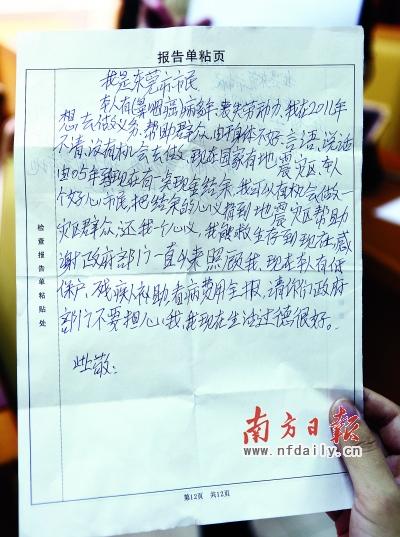 报告单粘页
我是东莞市市民
本人有(鼻咽癌)病多年,丧失劳动力,我在2011年
想去做义务,帮助群众,由于身体不好,言语,说话
不清,没有机会去做,现在国家有地震灾区,本人
由05年到现在有一点现金结余,我可以有机会做一
个好心市民,把结余的心义捐到地震灾区帮助
灾区群众,还我一个心义,我被救生存到现在,感
谢政府部门一直以来照顾我,现在本人有低
保户,残疾人补助,看病费用全报,请你们政府
部门不要担心我,我现在生活过德很好。
此敬:
检查报告单粘贴处
南方日报
www.nfdaily.cn
第12页 共12页